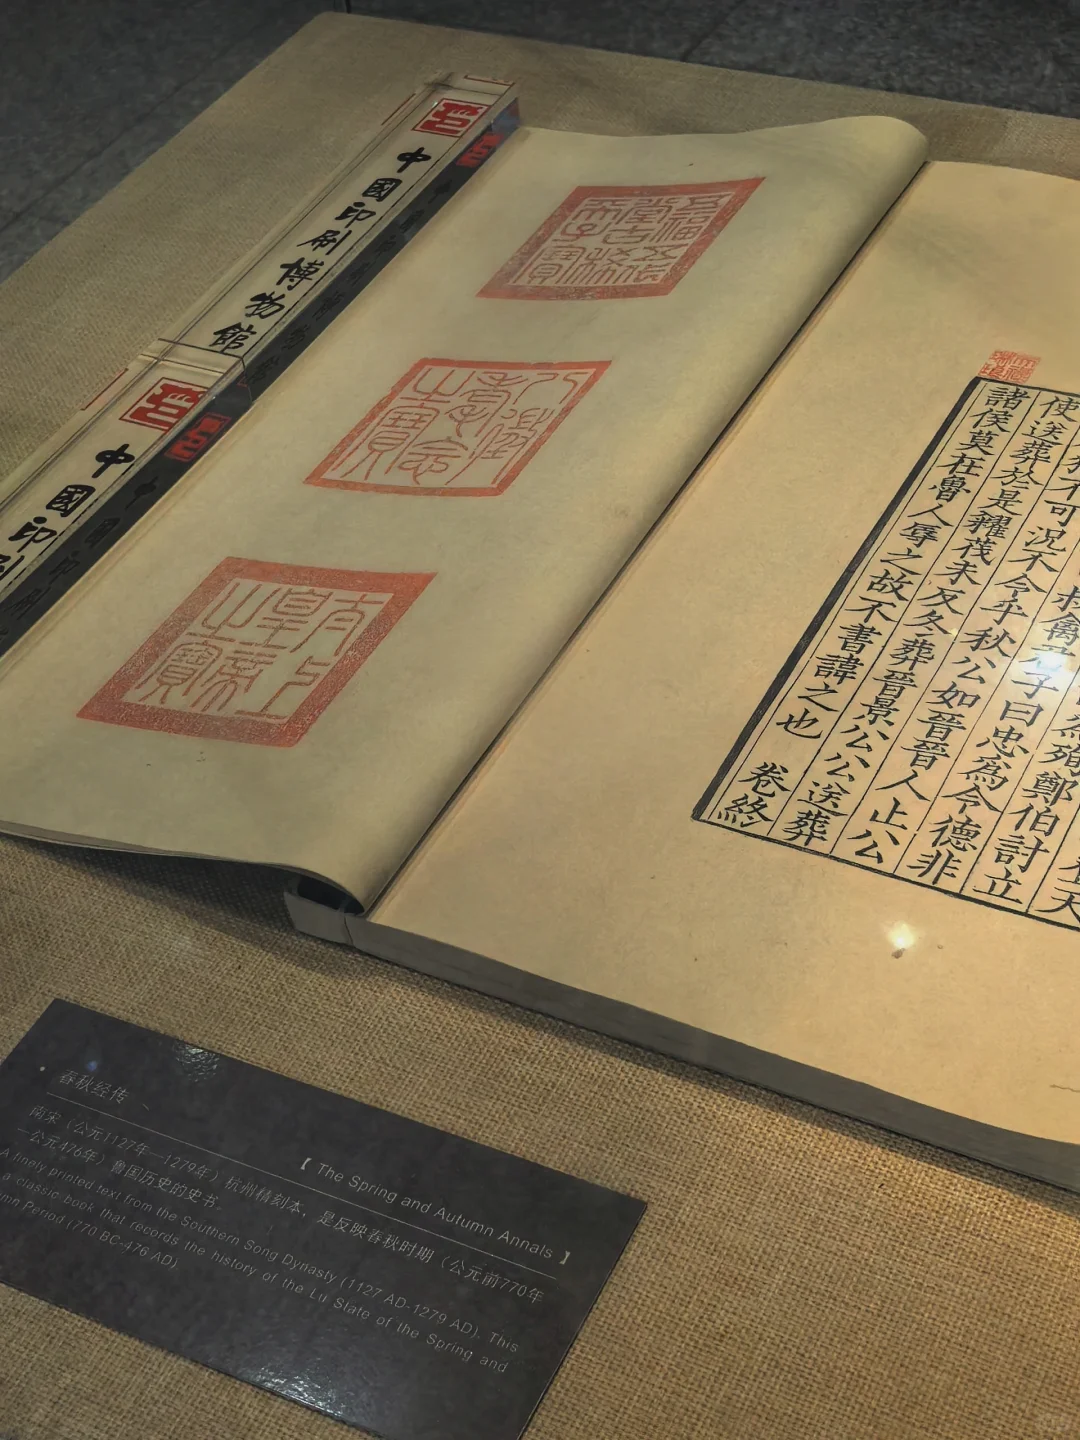 中國印刷博物館
中國印刷
五福五代堂古稀天子寶
八徵耄念之寶
太上皇帝之寶
為殉鄭伯討立
禽君子曰忠為令德非
不可況不令乎秋公如晉晉人止公
使送葬於是糴茷未反冬葬晉景公公送葬
諸侯莫在魯人辱之故不書諱之也 卷終
春秋经传
【 The Spring and Autumn Annals 】
南宋（公元1127年—1279年）杭州精刻本，是反映春秋时期（公元前770年
—公元476年）鲁国历史的史书。
A finely printed text from the Southern Song Dynasty (1127 AD-1279 AD). This
a classic book that records the history of the Lu State of the Spring and
Period (770 BC-476 AD)